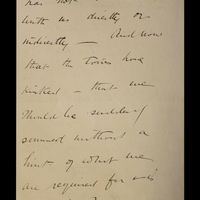 has not
with us directly or
indirectly — And now
that the town has
– that we
should be suddenly
summoned without a
hint of what we
are required for is